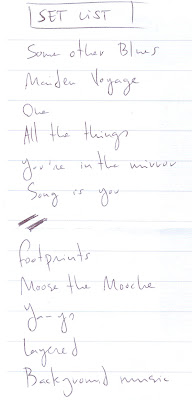 SET LIST
Some other Blues
Maiden Voyage
One
All the things
You're in the mirror
Song is you
Footprints
Moose the Mooche
Ya-yo
Layered
Background music